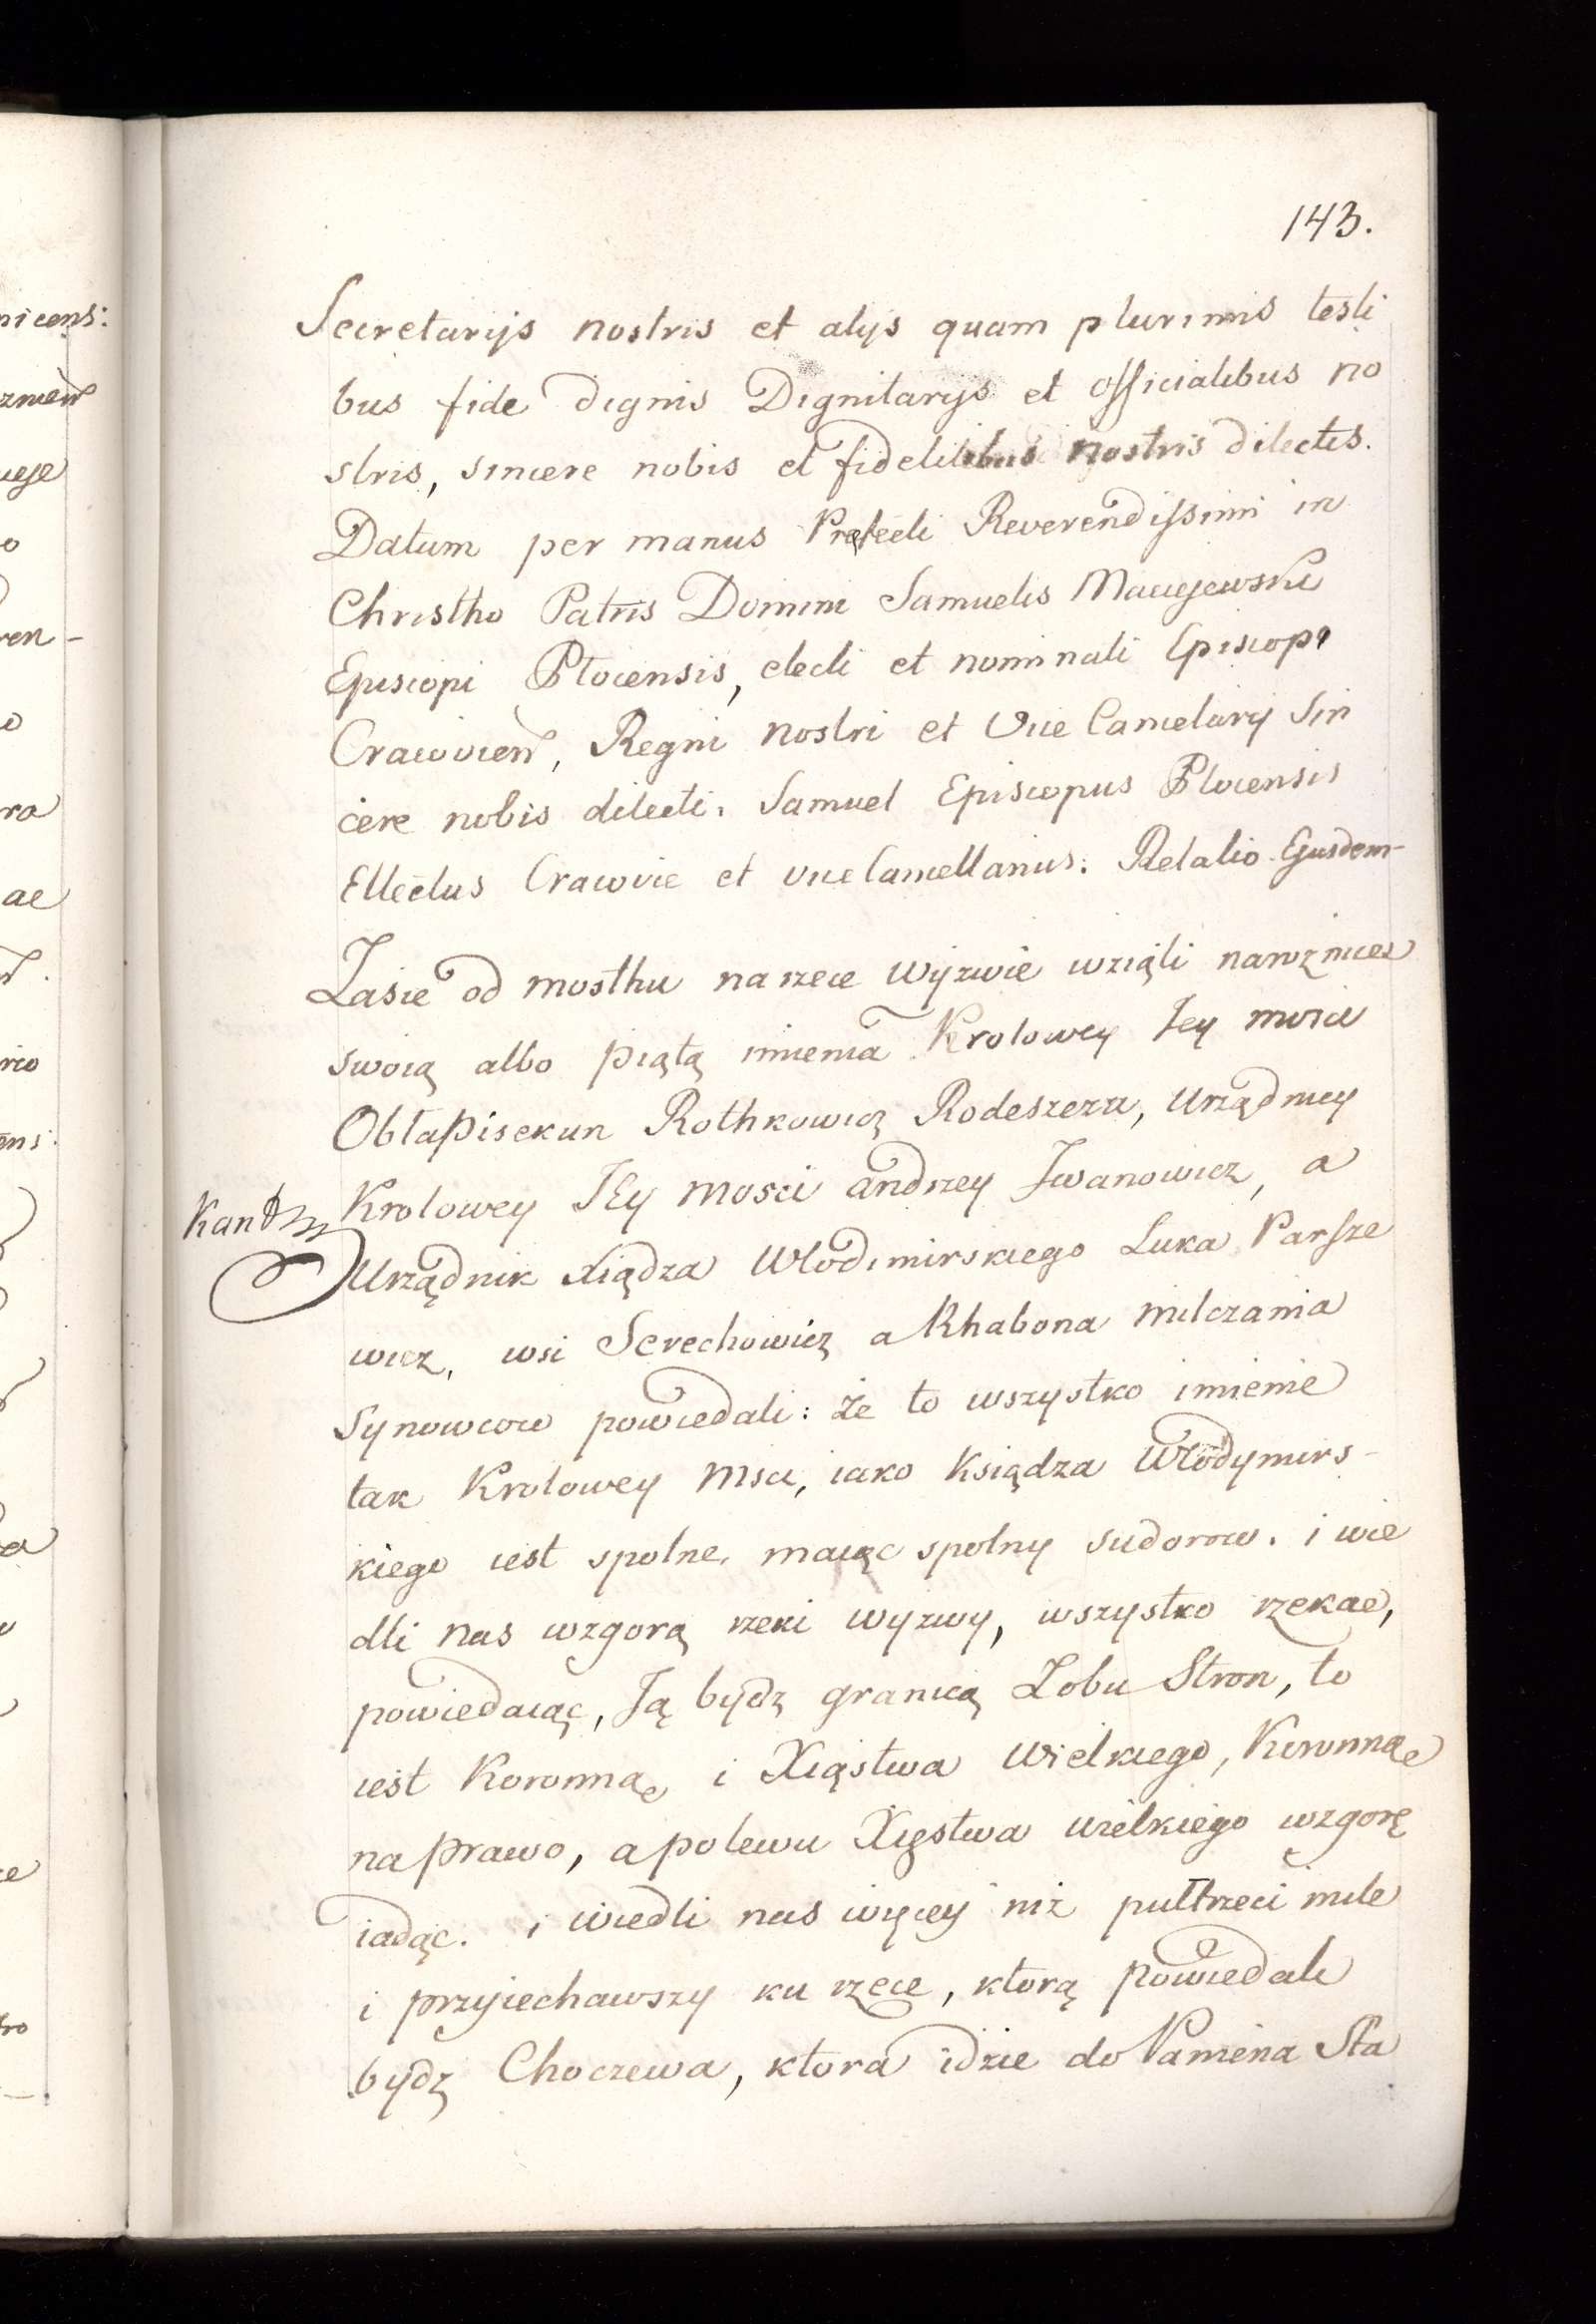 143.
Secretarijs nostris et alijs quam plurimis testi
bus fide dignis Dignitarijs et officialibus no
stris, sincere nobis et fidelibus nostris dilectis.
Datum per manus Prefecti Reverendissimi in
Christho Patris Domini Samuelis Maciejewski
Episcopi Plocensis, electi et nominati Episcopi
Crawvien, Regni nostri et Vice Cancelarij Sin
cere nobis dilecti. Samuel Episcopus Plocensis
Ellectus Crawvie et vice Cancellarius. Relatio Ejusdem
Zasie od mosthu na rzece wyzwie wziąli narożnice
swoią albo piątą imienia Krolowey Jey mosci
Rothkowicz Rodeszeza, urządnicy
Krolowey JEy Mosci andrzey Iwanowicz, a
Urządnik Xiądza Włodimirskiego Luka Parsze
wicz, wsi Serechowicz a Khabona milczania
Synowcow powiedali: że to wszystko imienie
tak Krolowey Msci, iako Księdza Włodymirs-
kiego iest spolne, maiąc spolny sudorow. i wie
dli nas wzgorą rzeki wyzwy, wszystko rzekae,
powiedaiąc, Ją bydz granicą Zobu Stron, to
iest Koronnae i Xiąstwa Wielkiego, Koronnae
na prawo, a polewu Xięstwa wielkiego wzgorę
iadąc. i wiedli nas więcey niż pułtrzeci mile
i przyiechawszy ku rzece, ktorą powiedali
bydz Choczewa, ktora idzie do Kamiena Sta